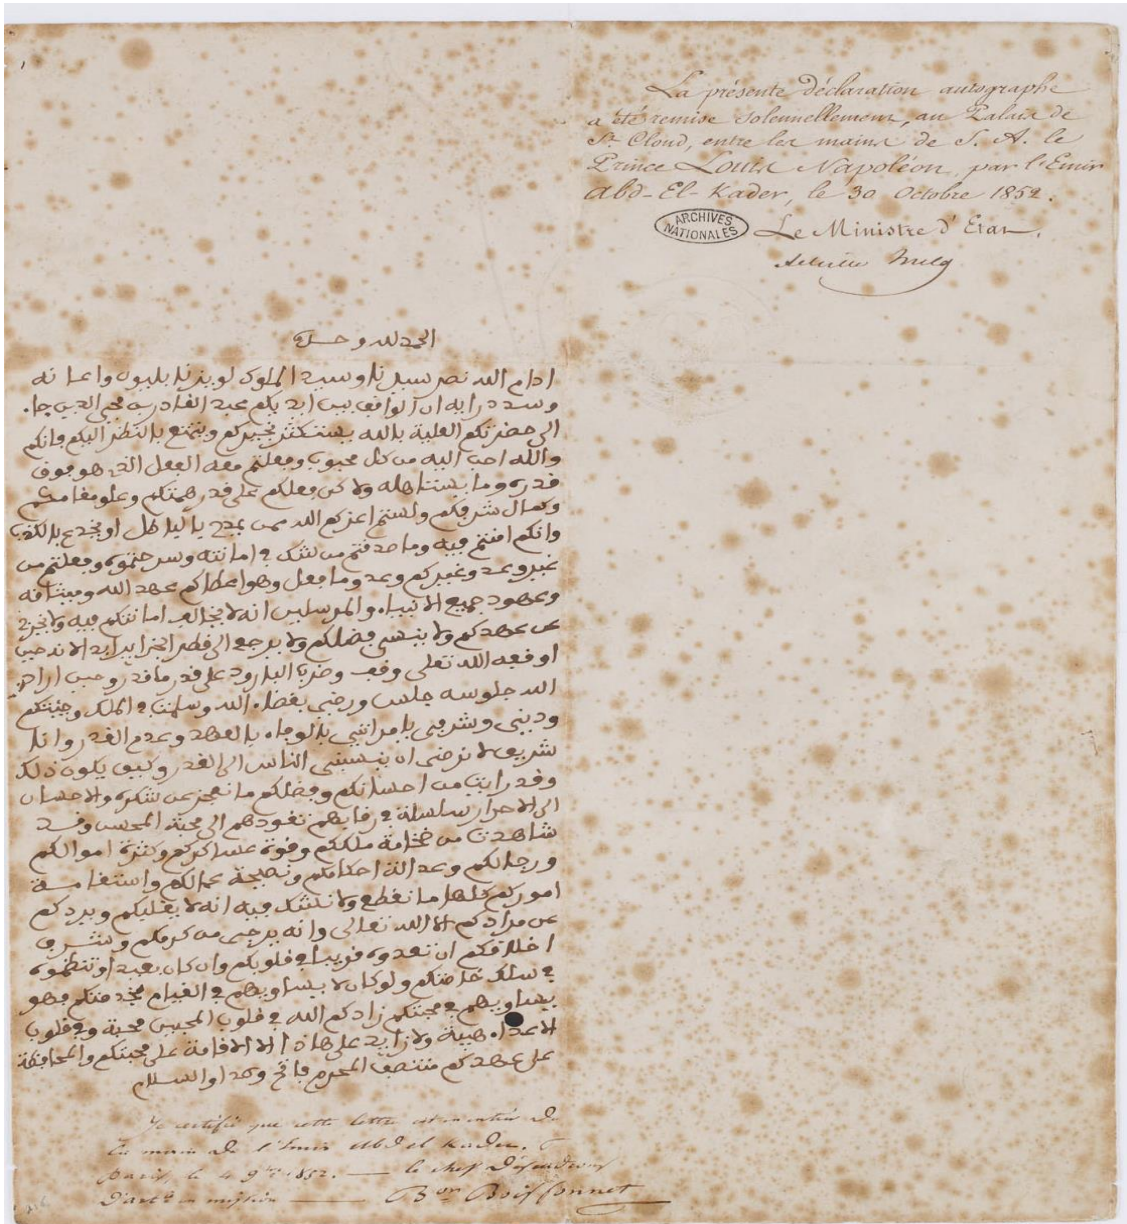 La présente déclaration autographe
a été remise solennellement, au Palais de
St. Cloud, entre les mains de S. A. le
Prince Louis Napoléon, par l'Emir
Abd-El-Kader, le 30 Octobre 1852.
ARCHIVES
NATIONALES
Le Ministre d'Etat,
الحمد لله وحده
ادام الله نصر سيدنا وسيد الملوك لويز نابليون واعانه
وسدد رايه ان الواقف بين ايديكم عبد القادر بن محي الدين جاء
الى حضرتكم العلية بالله يستكثر بخيركم ويتمتع بالنظر اليكم فانكم
والله احب اليه من كل محبوب وفعلتم معه الفعل الذي هو فوق
قدره وما يستاهله ولاكن فعلكم على قدر همتكم وعلو مقامكم
وكمال شرفكم ولستم اعزكم الله ممن يمدح بالباطل او يخدع بالكذب
وانكم امنتم فيه وما صدقتم من شك في امانته وسرحتموه وفعلتم من
غير وعد وغيركم وعد وما فعل وهو اعطاكم عهد الله وميثاقه
وعهود جميع الانبياء والمرسلين انه لا يخالف امانتكم فيه ولا يخرج
عن عهدكم ولا ينسى فضلكم ولا يرجع الى قطر الجزاير ابدا لانه حين
اوقفه الله تعلى وقف وضرب البارود على قدر ما قدر وحين اراد
الله جلوسه جلس ورضي بقضاء الله وسلمت في الملك وجيتكم
وديني وشرفي يامراني بالوفاء بالعهد وعدم الغدر وانا
شريف لا نرضى ان ينسبني الناس الى الغدر وكيف يكون ذلك
وقد رايت من احسانكم وفضلكم ما نعجز عن شكره والاحسان
الى الاحرار سلسلة في رقابهم تقودهم الى محبة المحسن وقد
شاهدت من ضخامة ملككم وقوة عساكركم وكثرة اموالكم
ورجالكم وعدالة احكامكم ونصيحة عمالكم واستقامة
اموركم كلها ما نقطع ولا نشك فيه انه لا يغلبكم ويردكم
عن مرادكم الا الله تعالى وانه يرجى من كرمكم وشرف
اخلاقكم ان تعدوه قريبا في قلوبكم وان كان بعيدا وتنظموه
في سلك خاصتكم ولو كان لا يساويهم في القيام بخدمتكم فهو
يساويهم في محبتكم زادكم الله في قلوب المحبين محبة وفي قلوب
الاعداء هيبة ولا زايد على هاذا الا الاقامة على محبتكم والمحافظة
على عهدكم منتصف المحرم فاتح والسلام
Je certifie que cette lettre est en entier de
la main de l'Emir Abd el Kader.
Paris, le 4 9bre 1852. — le chef d'escadrons
d'artie en mission — Bon Boissonnet